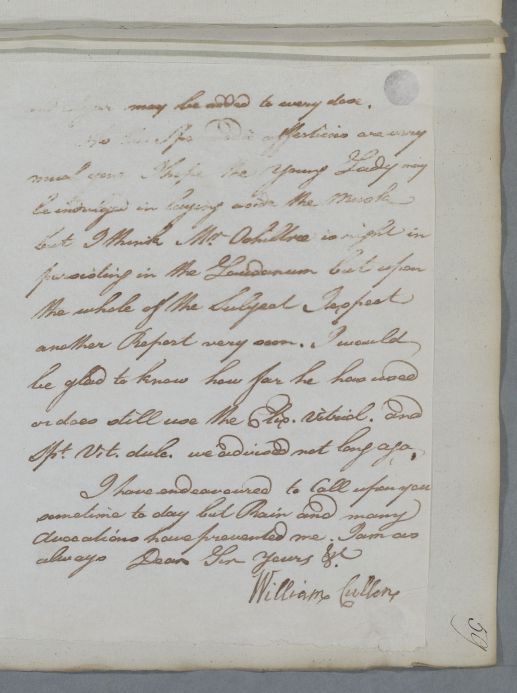 may be added to every dose.
affections are very
much gone I hope the Young Lady may
be indulged in laying aside the Musk
but I think Mr. Ochiltree is right in
persisting in the Laudanum but upon
the whole of the Subject I expect
another Report very soon. I would
be glad to know how far he has used
or does still use the Elix. Vitriol. and
Spt. Vit. dulc. we advised not long ago.
I have endeavoured to Call upon you
sometime to day but Rain and many
Avocations have prevented me. I am as
always Dear Sir Yours &c
William Cullen
59